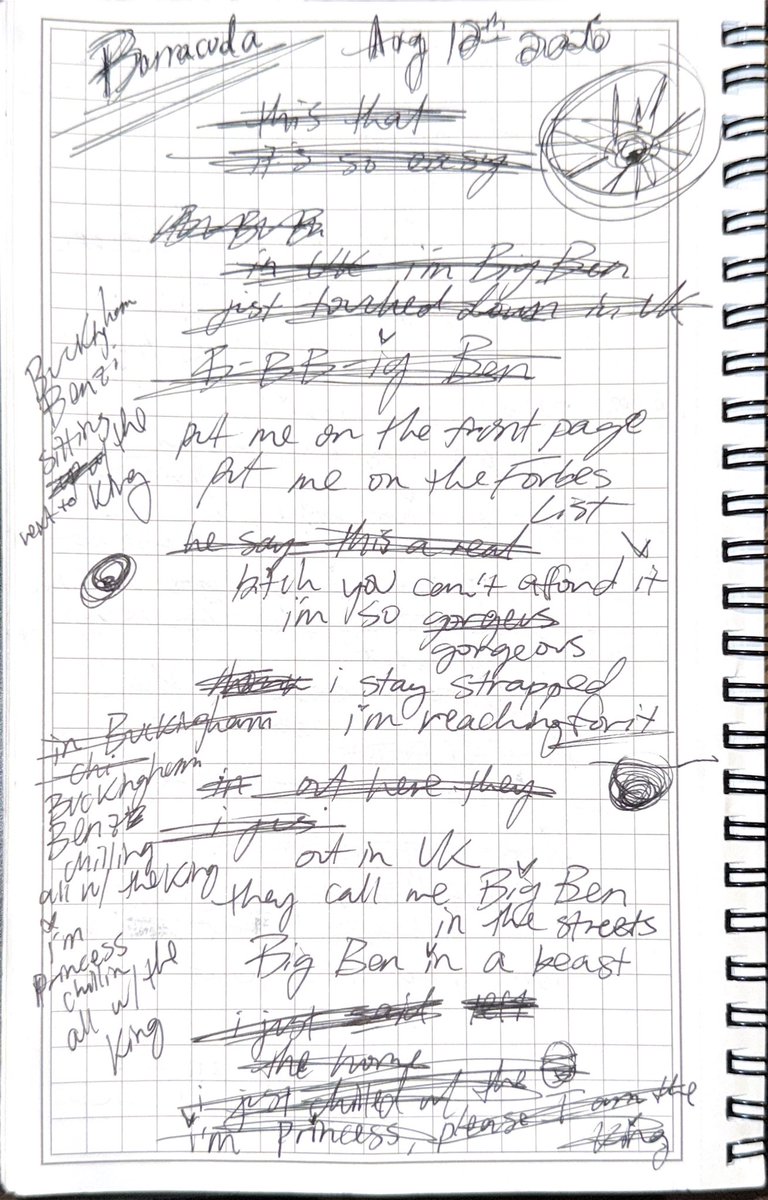 Barracuda Aug 12th 2026
this that
it's so easy
Bu Bu Bu
in UK i'm Big Ben
just touched down in UK
B-BB-ig Ben
put me on the front page
put me on the Forbes
List
he say this a real
bitch you can't afford it
i'm so gorgeus
gorgeous
i stay strapped
i'm reaching for it
in out here they
i jus
out in UK
they call me Big Ben
in the streets
Big Ben in a beast
i just said left
the home
i just chilled w/ the
i'm Princess, please I am the
King
Bucktgham
Benzi
sitting
the
next to King
in Buckngham
chi
Buckingham
Benz
chilling
all w/ the King
i'm
princess
chillin
all w/ the
King